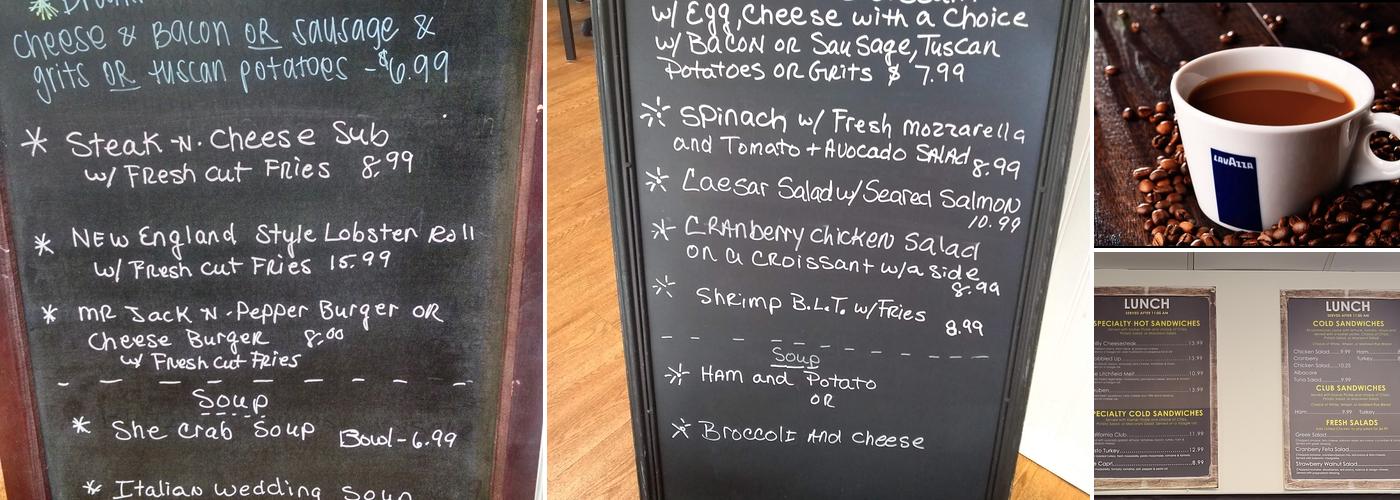 cheese & Bacon OR sausage &
grits OR tuscan potatoes - $6.99
* Steak -N- Cheese Sub
w/ Fresh cut Fries 8.99
* New England Style Lobster Roll
w/ Fresh cut Fries 15.99
* MR Jack -N- Pepper Burger OR
Cheese Burger 8.00
w/ Fresh cut Fries
Soup
* She Crab Soup Bowl - 6.99
* Italian Wedding Soup
w/ Egg, Cheese with a Choice
w/ Bacon OR Sausage, Tuscan
Potatoes OR Grits $ 7.99
* Spinach w/ Fresh Mozzarella
and Tomato + Avocado Salad 8.99
* Caesar Salad w/ Seared Salmon
10.99
* Cranberry chicken Salad
on a croissant w/a side
8.99
* Shrimp B.L.T. w/Fries
8.99
Soup
* Ham and Potato
OR
* Broccoli and cheese
LAVAZZA
LUNCH
SERVED AFTER 11:00 AM
SPECIALTY HOT SANDWICHES
13.99
13.99
10.99
13.99
SPECIALTY COLD SANDWICHES
11.99
12.99
8.99
LUNCH
SERVED AFTER 11:00 AM
COLD SANDWICHES
Chicken Salad 9.99 Ham
Cranberry Turkey
Chicken Salad 10.25
Albacore
Tuna Salad 9.99
CLUB SANDWICHES
Ham 9.99 Turkey
FRESH SALADS
Greek Salad
Cranberry Feta Salad
Strawberry Walnut Salad